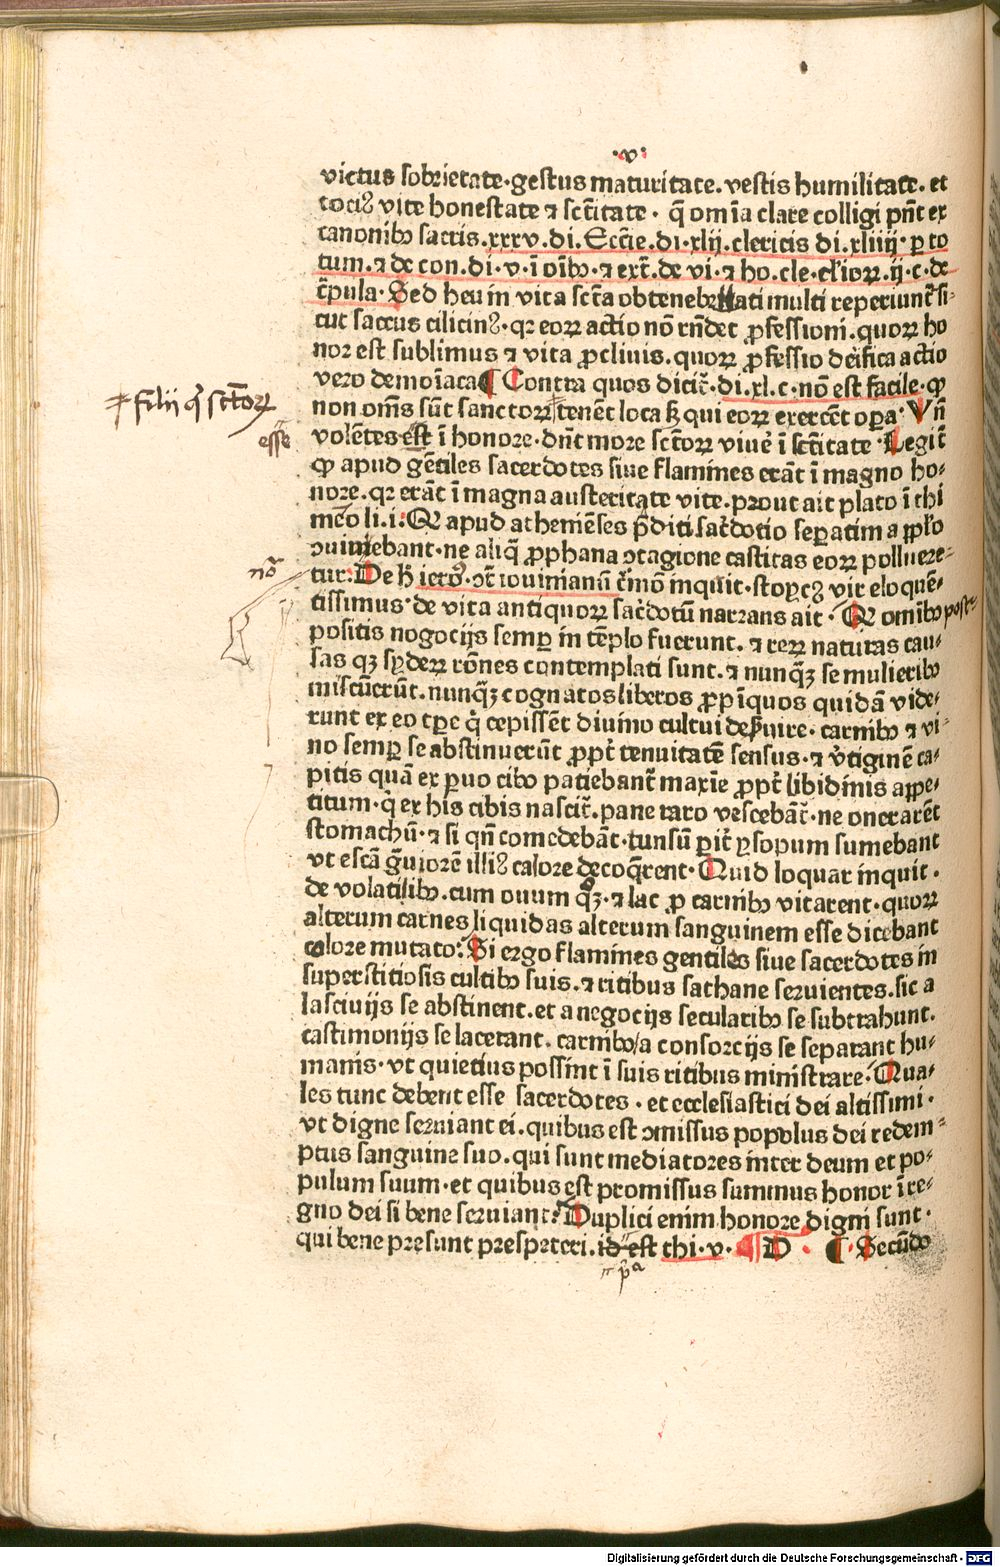 ·v·
victus sobrietate·gestus maturitate. vestis humilitate. et
toci⁹ vite honestate ⁊ sctitate · q̄ om̄ia clare colligi pn̄t ex
canonibꝰ sacris.xxxv.di.Eccīe.di·xlij.clericis di.xliiij·ꝑ to
tum.⁊ de con.di.v.ī oībꝰ.⁊ ext̄.de vi.⁊ ho.cle.cl̄ioꝝ.ij.c.de
c̄pula·Sed heu in vita sctā obtenebrati multi reperiunt̄ si-
cut saccus cilicin⁹·qꝛ eoꝝ actio nō rn̄det ꝓfessioni.quoꝝ ho
nor est sublimus ⁊ vita ꝓclivis.quoꝝ ꝓfessio deifica actio
vero demoīaca ¶ Contra quos dicit̄.di.xl.c.nō est facile.ꝙ
non om̄s sūt sanctoꝝ tenēt loca sꝫ qui eoꝝ exercēt oꝑa·Vn̄
# filij q̄ sctoꝝ
esse
volētes est ī honore.dn̄t more sctoꝝ viuē ī sctitate·Legit̄
ꝙ apud gētiles sacerdotes siue flamines erāt ī magno ho-
nore.qꝛ erāt ī magna austeritate vite.prout ait plato ī thi
meo li.i.Q apud atheniēses p̄diti sac̄dotio seꝑatim a ppl̄o
ꝯuinebant·ne aliq̄ ꝓphana ꝯtagione castitas eoꝝ polluere-
nō
tur:De h̄ iero⁹.ꝯt̄ iouinianū c̄mō inquit·stoyc⁹ vir eloquē-
tissimus·de vita antiquoꝝ sac̄dotū narrans ait·Q omībꝰ post-
positis nogocijs semꝑ in tēplo fuerunt.⁊ reꝝ naturas cau-
sas qꝫ syderꝝ rōnes contemplati sunt.⁊ nunqꝫ se mulieribꝰ
miscuerūt.nunqꝫ cognatos liberos ꝓpīquos quidā vide-
runt ex eo tꝑe q̄ cepissēt diuino cultui deẜuire.carnibꝰ ⁊ vi-
no semꝑ se abstinuerūt ꝓpt̄ tenuitatē sensus·⁊ v̄tiginē ca-
pitis quā ex ꝑuo cibo patiebant̄ maxīe ꝓpt̄ libidinis appe-
titum·q̄ ex his cibis nascit̄.pane raro vescebāt̄·ne onerarēt
stomachū·⁊ si qn̄ comedebāt·tunsū ꝑit̄ ysopum sumebant
vt escā gūiorē illi⁹ calore decoq̄rent·Quid loquar inquit·
de volatilibꝰ.cum ouum qꝫ·⁊ lac ꝓ carnibꝰ vitarent·quoꝝ
alterum carnes liquidas alterum sanguinem esse dicebant
colore mutato:Si ergo flamines gentiles siue sacerdotes in
superstitiosis cultibꝰ suis.⁊ ritibus sathane seruientes.sic a
lasciuijs se abstinent.et a negocijs secularibꝰ se subtrahunt.
castimonijs se lacerant.carnibꝰ/a consorcijs se separant hu-
manis·vt quietius possint ī suis ritibus ministrare:Qua-
les tunc debent esse sacerdotes·et ecclesiastici dei altissimi·
vt digne seruiant ei.quibus est ꝯmissus populus dei redem-
ptus sanguine suo.qui sunt mediatores inter deum et po-
pulum suum·et quibus est promissus summus honor ī re-
gno dei si bene seruiant:Duplici enim honore digni sunt·
qui bene presunt prespiteri.id est thi·v.¶ D ¶ Secūdo
pa